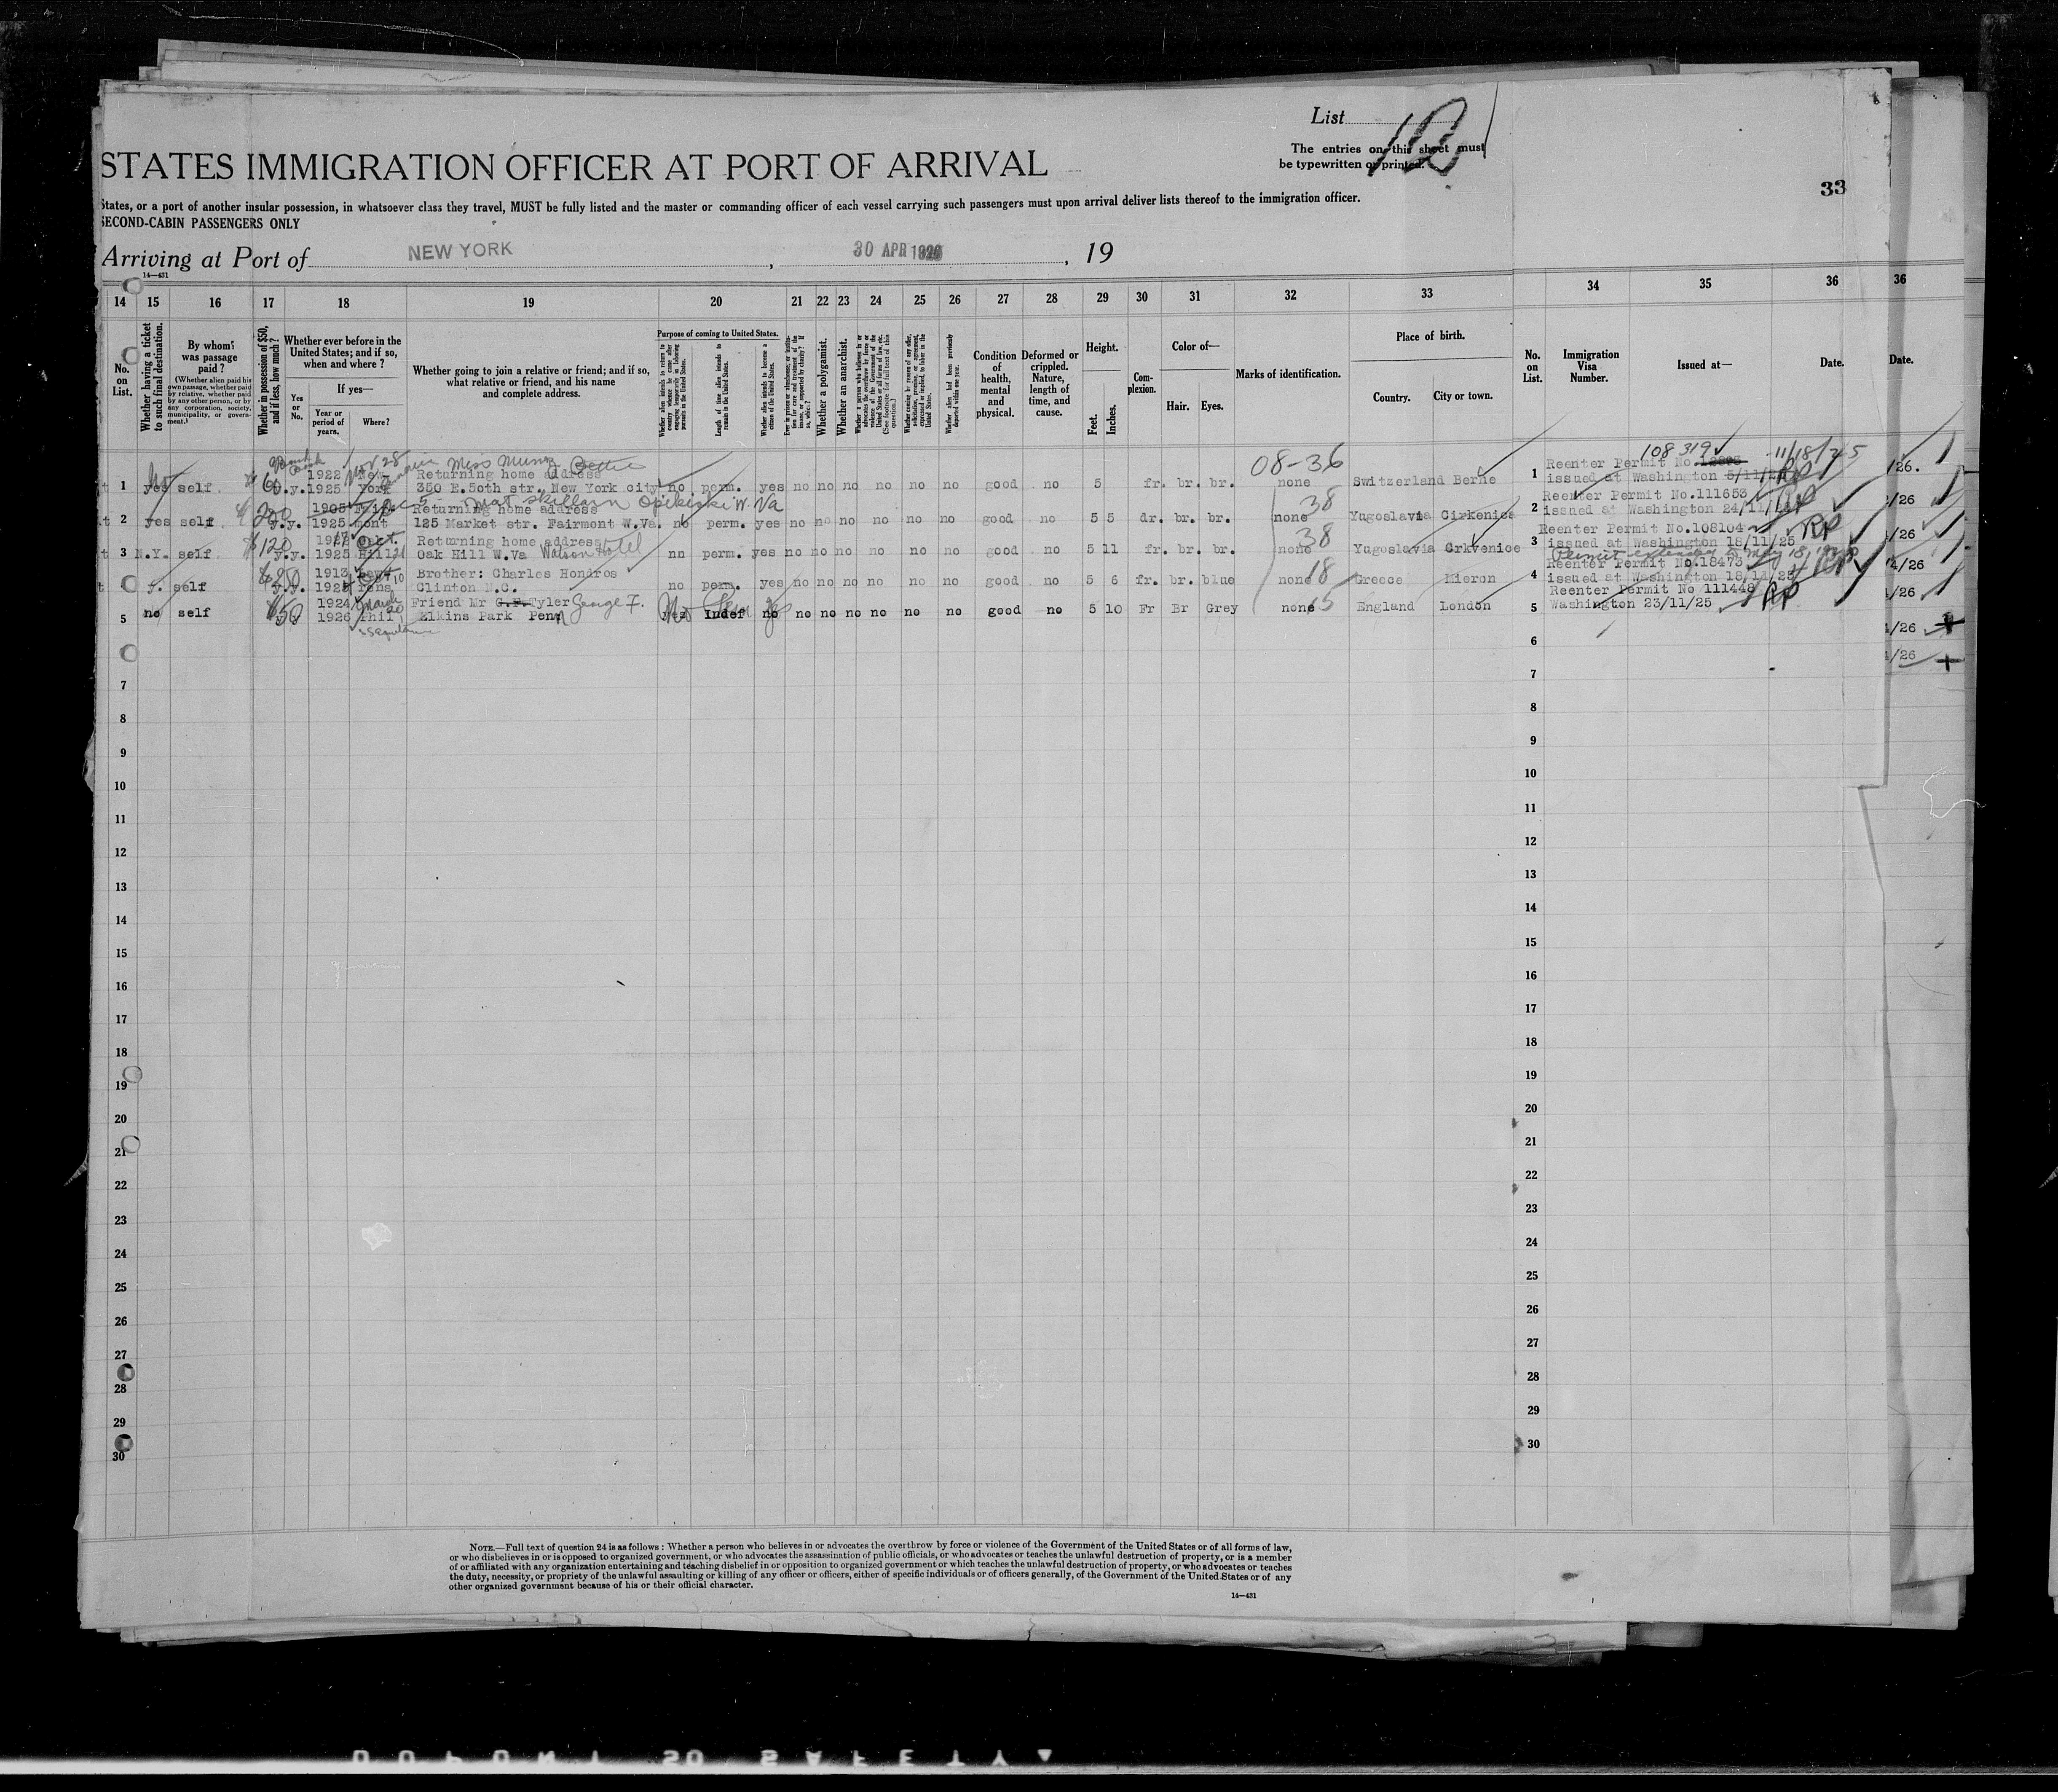 List
12
The entries on this sheet must
be typewritten or printed.
33
STATES IMMIGRATION OFFICER AT PORT OF ARRIVAL
States, or a port of another insular possession, in whatsoever class they travel, MUST be fully listed and the master or commanding officer of each vessel carrying such passengers must upon arrival deliver lists thereof to the immigration officer.
SECOND-CABIN PASSENGERS ONLY
Arriving at Port of NEW YORK, 30 APR 1926, 19
14—431
14 15 16 17 18 19 20 21 22 23 24 25 26 27 28 29 30 31 32 33 34 35 36 36
No. on List.
Whether having a ticket to such final destination.
By whom was passage paid?
(Whether alien paid his own passage, whether paid by relative, whether paid by any other person, or by any corporation, society, municipality, or government.)
Whether in possession of $50, and if less, how much?
Whether ever before in the United States; and if so, when and where?
If yes—
Yes or No.
Year or period of years.
Where?
Whether going to join a relative or friend; and if so, what relative or friend, and his name and complete address.
Purpose of coming to United States.
Length of time alien intends to remain in the United States.
Whether alien intends to become a citizen of the United States.
Whether a polygamist.
Whether an anarchist.
Condition of health, mental and physical.
Deformed or crippled. Nature, length of time, and cause.
Height.
Feet. Inches.
Complexion.
Color of—
Hair. Eyes.
Marks of identification.
Place of birth.
Country. City or town.
No. on List.
Immigration Visa Number.
Issued at—
Date.
Date.
Miss Munz Bettie
08-36
108319 11/18/25
1 yes self y.y. 1922 1925 New York Returning home address
350 E.5oth str. New York city no perm. yes no no no no no no good no 5 fr. br. br. none Switzerland Berne 1 Reenter Permit No.
issued at Washington 5/11/25 /26.
Opikiski W. Va
38
2 yes self 200 y.y. 1905 1925 Fairmont Returning home address
125 Market str. Fairmont W.Va. no perm. yes no no no no no no good no 5 5 dr. br. br. none Yugoslavia Cirkenice 2 Reenter Permit No.111653
issued at Washington 24/11/ /26
38
3 N.Y. self $120 y.y. 1925 Hill Returning home address
Oak Hill W.Va Watson Hotel no perm. yes no no no no no no good no 5 11 fr. br. br. none Yugoslavia Crkvenice 3 Reenter Permit No.108104 RP
issued at Washington 18/11/25 /26
Permit extended to May 18, 1926
18
4 self y.y. 1913 1925 Brother: Charles Hondros
Clinton N.C. no perm. yes no no no no no no good no 5 6 fr. br. blue none Greece Mieron 4 Reenter Permit No.18473
issued at Washington 18/11/25 RP 4/26
15
5 no self 50 1924 1926 Phil Friend Mr C.F. Tyler George F.
Elkins Park Penn Indef no no no no no no no good no 5 10 Fr Br Grey none England London 5 Reenter Permit No 111448
Washington 23/11/25 RP /26
6 6 /26
7 7 /26
8 8
9 9
10 10
11 11
12 12
13 13
14 14
15 15
16 16
17 17
18 18
19 19
20 20
21 21
22 22
23 23
24 24
25 25
26 26
27 27
28 28
29 29
30 30
NOTE.—Full text of question 24 is as follows: Whether a person who believes in or advocates the overthrow by force or violence of the Government of the United States or of all forms of law,
or who disbelieves in or is opposed to organized government, or who advocates the assassination of public officials, or who advocates or teaches the unlawful destruction of property, or is a member
of or affiliated with any organization entertaining and teaching disbelief in or opposition to organized government or which teaches the unlawful destruction of property, or who advocates or teaches
the duty, necessity, or propriety of the unlawful assaulting or killing of any officer or officers, either of specific individuals or of officers generally, of the Government of the United States or of any
other organized government because of his or their official character.
14—431